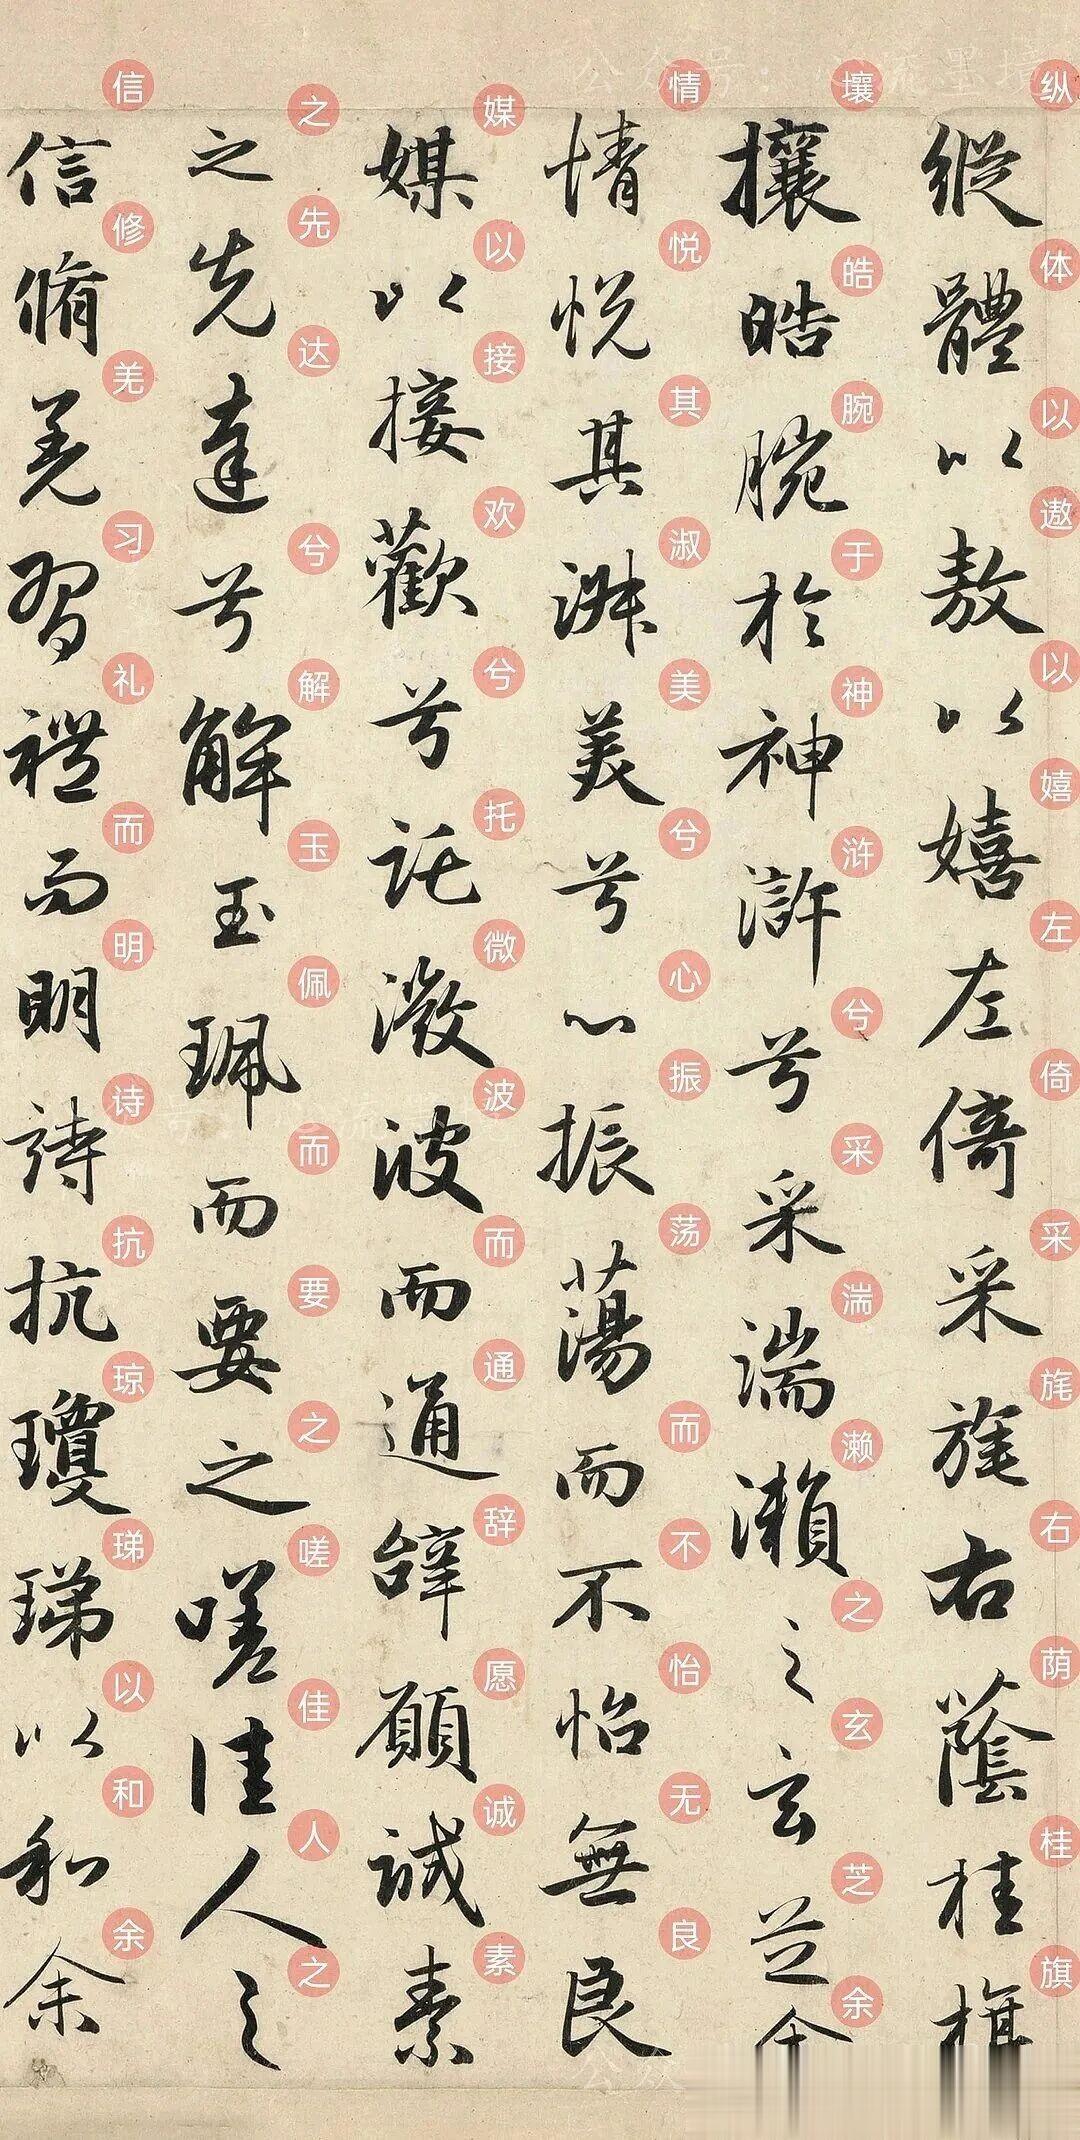 纵体以遨以嬉左倚采旄右荫桂旗
縱體以敖以嬉左倚采旄右蔭桂旗
壤皓腕于神浒兮采湍濑之玄芝余
攘皓腕於神滸兮采湍瀨之玄芝余
情悦其淑美兮心振荡而不怡无良
情悅其淑美兮心振蕩而不怡無良
媒以接欢兮托微波而通辞愿诚素
媒以接歡兮託微波而通辭願誠素
之先达兮解玉佩而要之嗟佳人之
之先達兮解玉珮而要之嗟佳人之
信修羌习礼而明诗抗琼珶以和余
信脩羌習禮而明詩抗瓊珶以和余